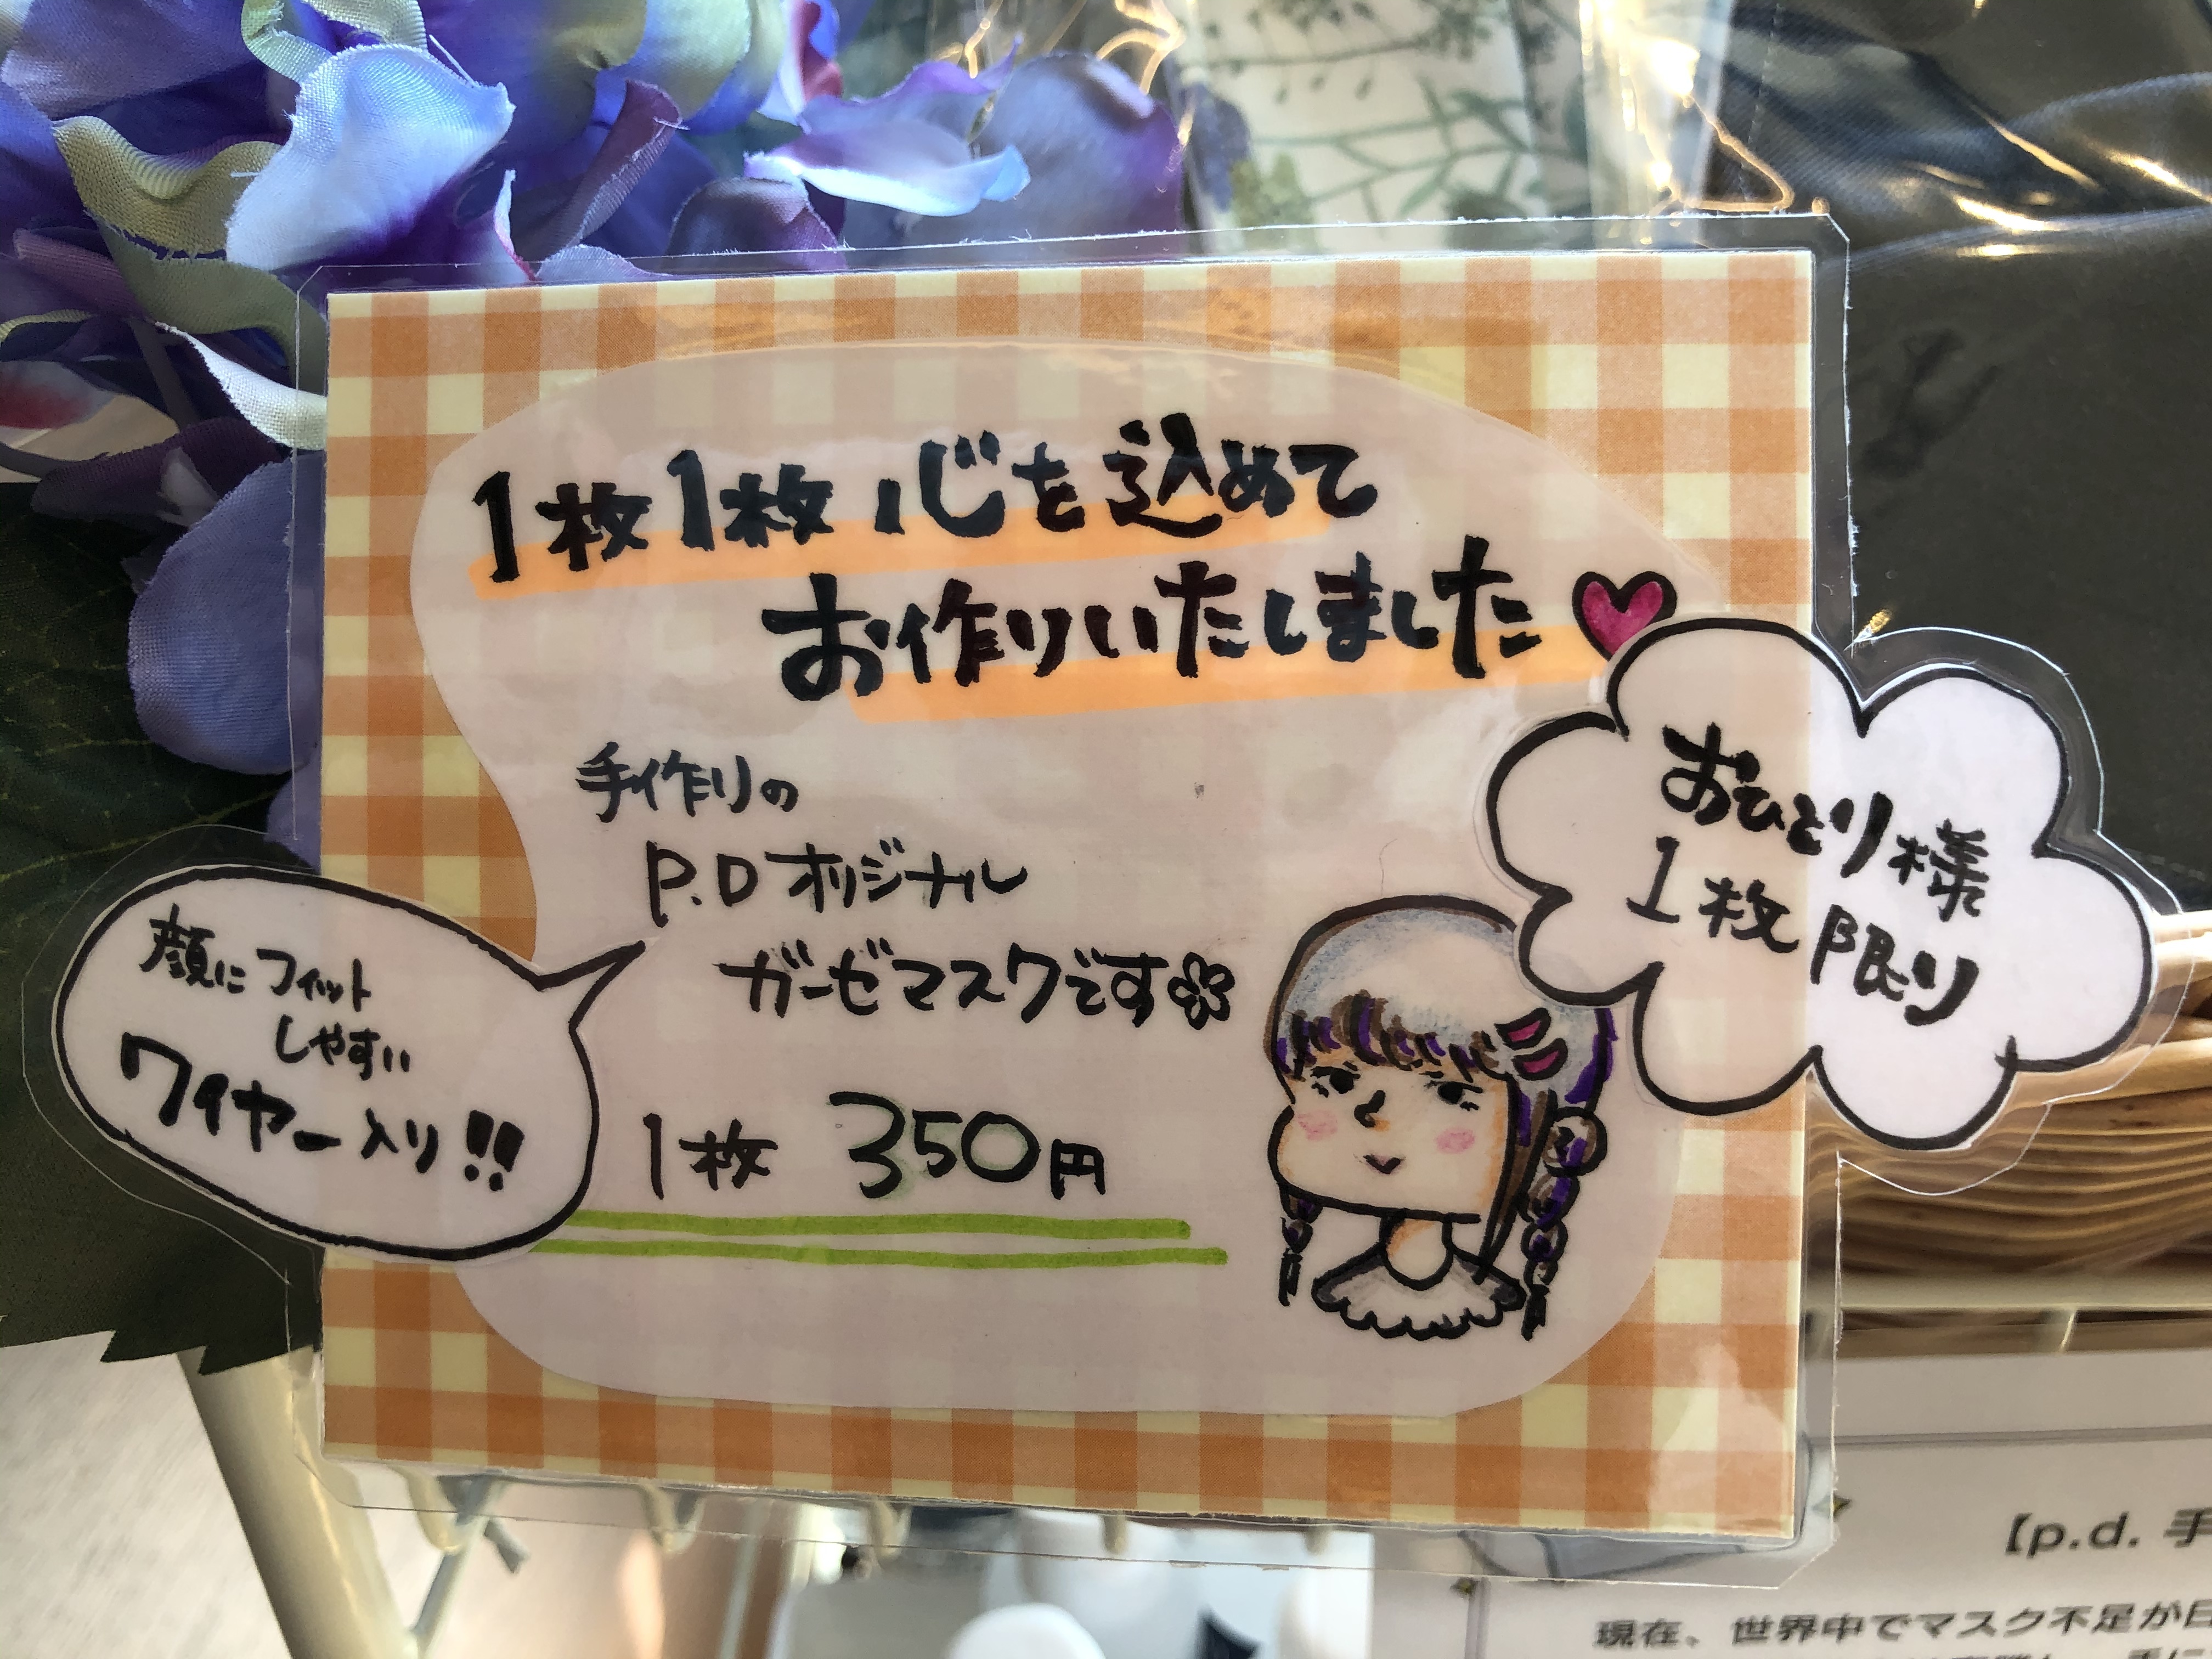 1枚1枚心を込めて
お作りいたしました
手作りの
P.Dオリジナル
ガーゼマスクです
1枚 350円
おひとり様
1枚限り
顔にフィット
しやすい
ワイヤー入り!!
【p.d. 手
現在、世界中でマスク不足が日